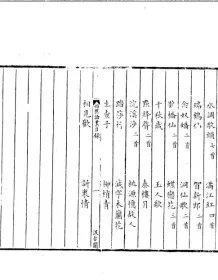 水調歌頭 七首
滿江紅 四首
瑞鶴仙
賀新郎 二首
念奴嬌 二首
洞仙歌 二首
鵲橋仙 二首
蝶戀花 三首
千秋歲
玉人歌
燕歸梁 二首
秦樓月
浣溪沙 二首
桃源憶故人
減字木蘭花
生查子
柳梢青
相見歡
訴衷情